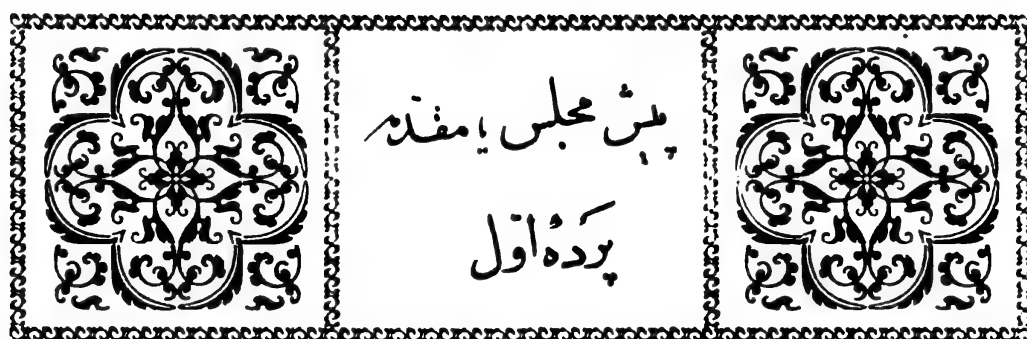 پیش مجلس یا مقدمه
پردهٔ اول